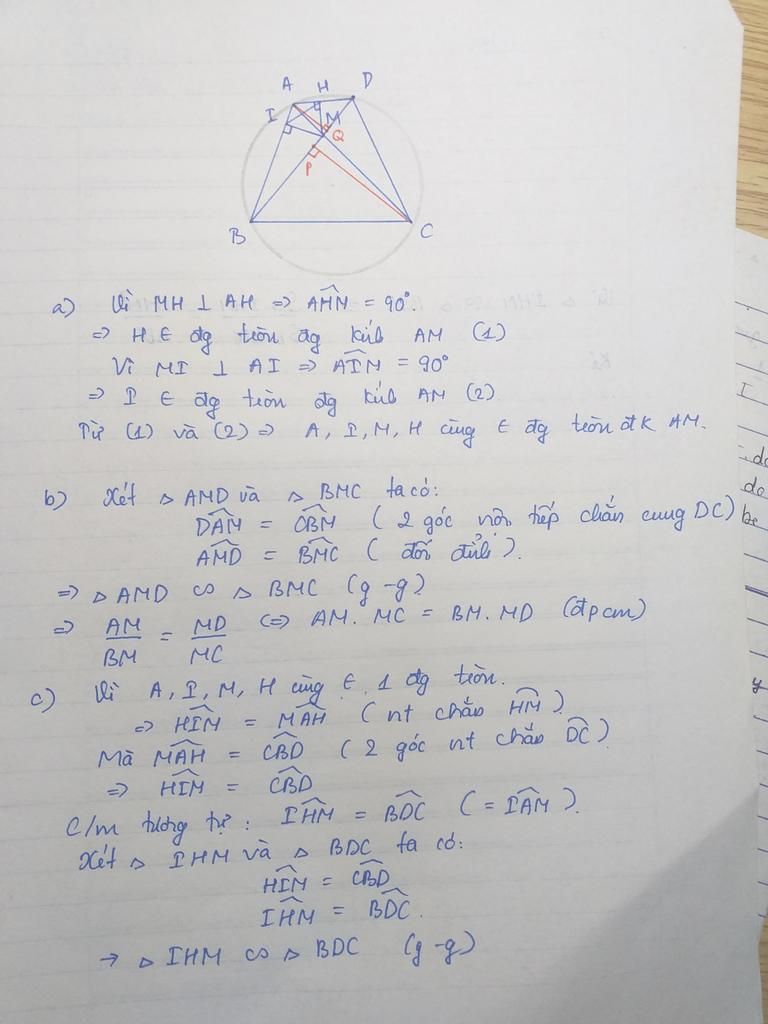 A H D
I M
Q
P
B C
a) Vì MH ⊥ AH => \widehat{AHM} = 90°.
=> H ∈ đg tròn đg kính AM (1)
Vì MI ⊥ AI => \widehat{AIM} = 90°
=> I ∈ đg tròn đg kính AM (2)
Từ (1) và (2) => A, I, M, H cùng ∈ đg tròn đk AM.
b) Xét △ AMD và △ BMC ta có:
\widehat{DAM} = \widehat{CBM} (2 góc nội tiếp chắn cung DC)
\widehat{AMD} = \widehat{BMC} (đối đỉnh).
=> △ AMD ∽ △ BMC (g-g)
=> \frac{AM}{BM} = \frac{MD}{MC} <=> AM. MC = BM. MD (đpcm)
c) Vì A, I, M, H cùng ∈ 1 đg tròn.
=> \widehat{HIM} = \widehat{MAH} (nt chắn \widehat{HM})
Mà \widehat{MAH} = \widehat{CBD} (2 góc nt chắn \widehat{DC})
=> \widehat{HIM} = \widehat{CBD}
C/m tương tự: \widehat{IHM} = \widehat{BDC} (= \widehat{IAM}).
Xét △ IHM và △ BDC ta có:
\widehat{HIM} = \widehat{CBD}
\widehat{IHM} = \widehat{BDC}.
→ △ IHM ∽ △ BDC (g-g)